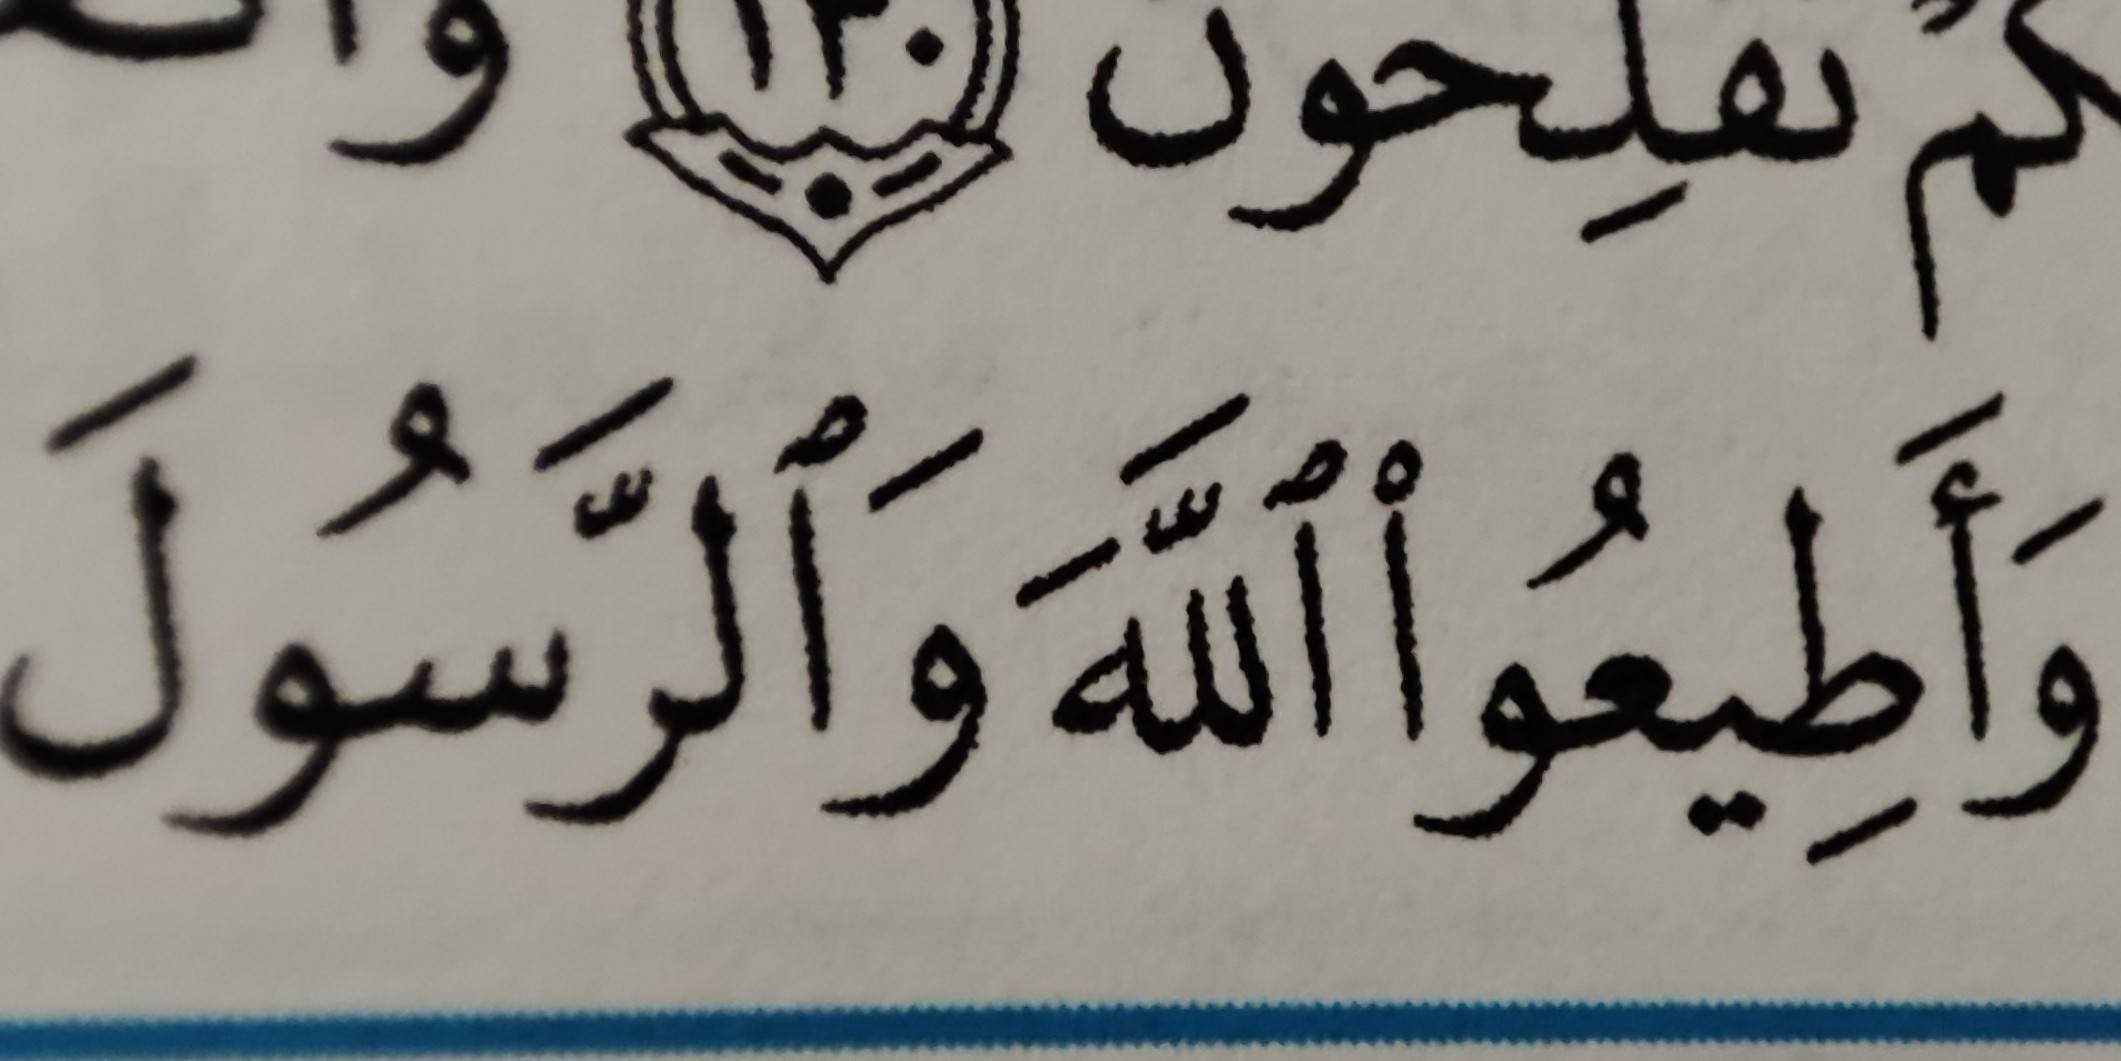 كُمْ تُفْلِحُونَ ١٣٠
وَأَطِيعُوا۟ ٱللَّهَ وَٱلرَّسُولَ